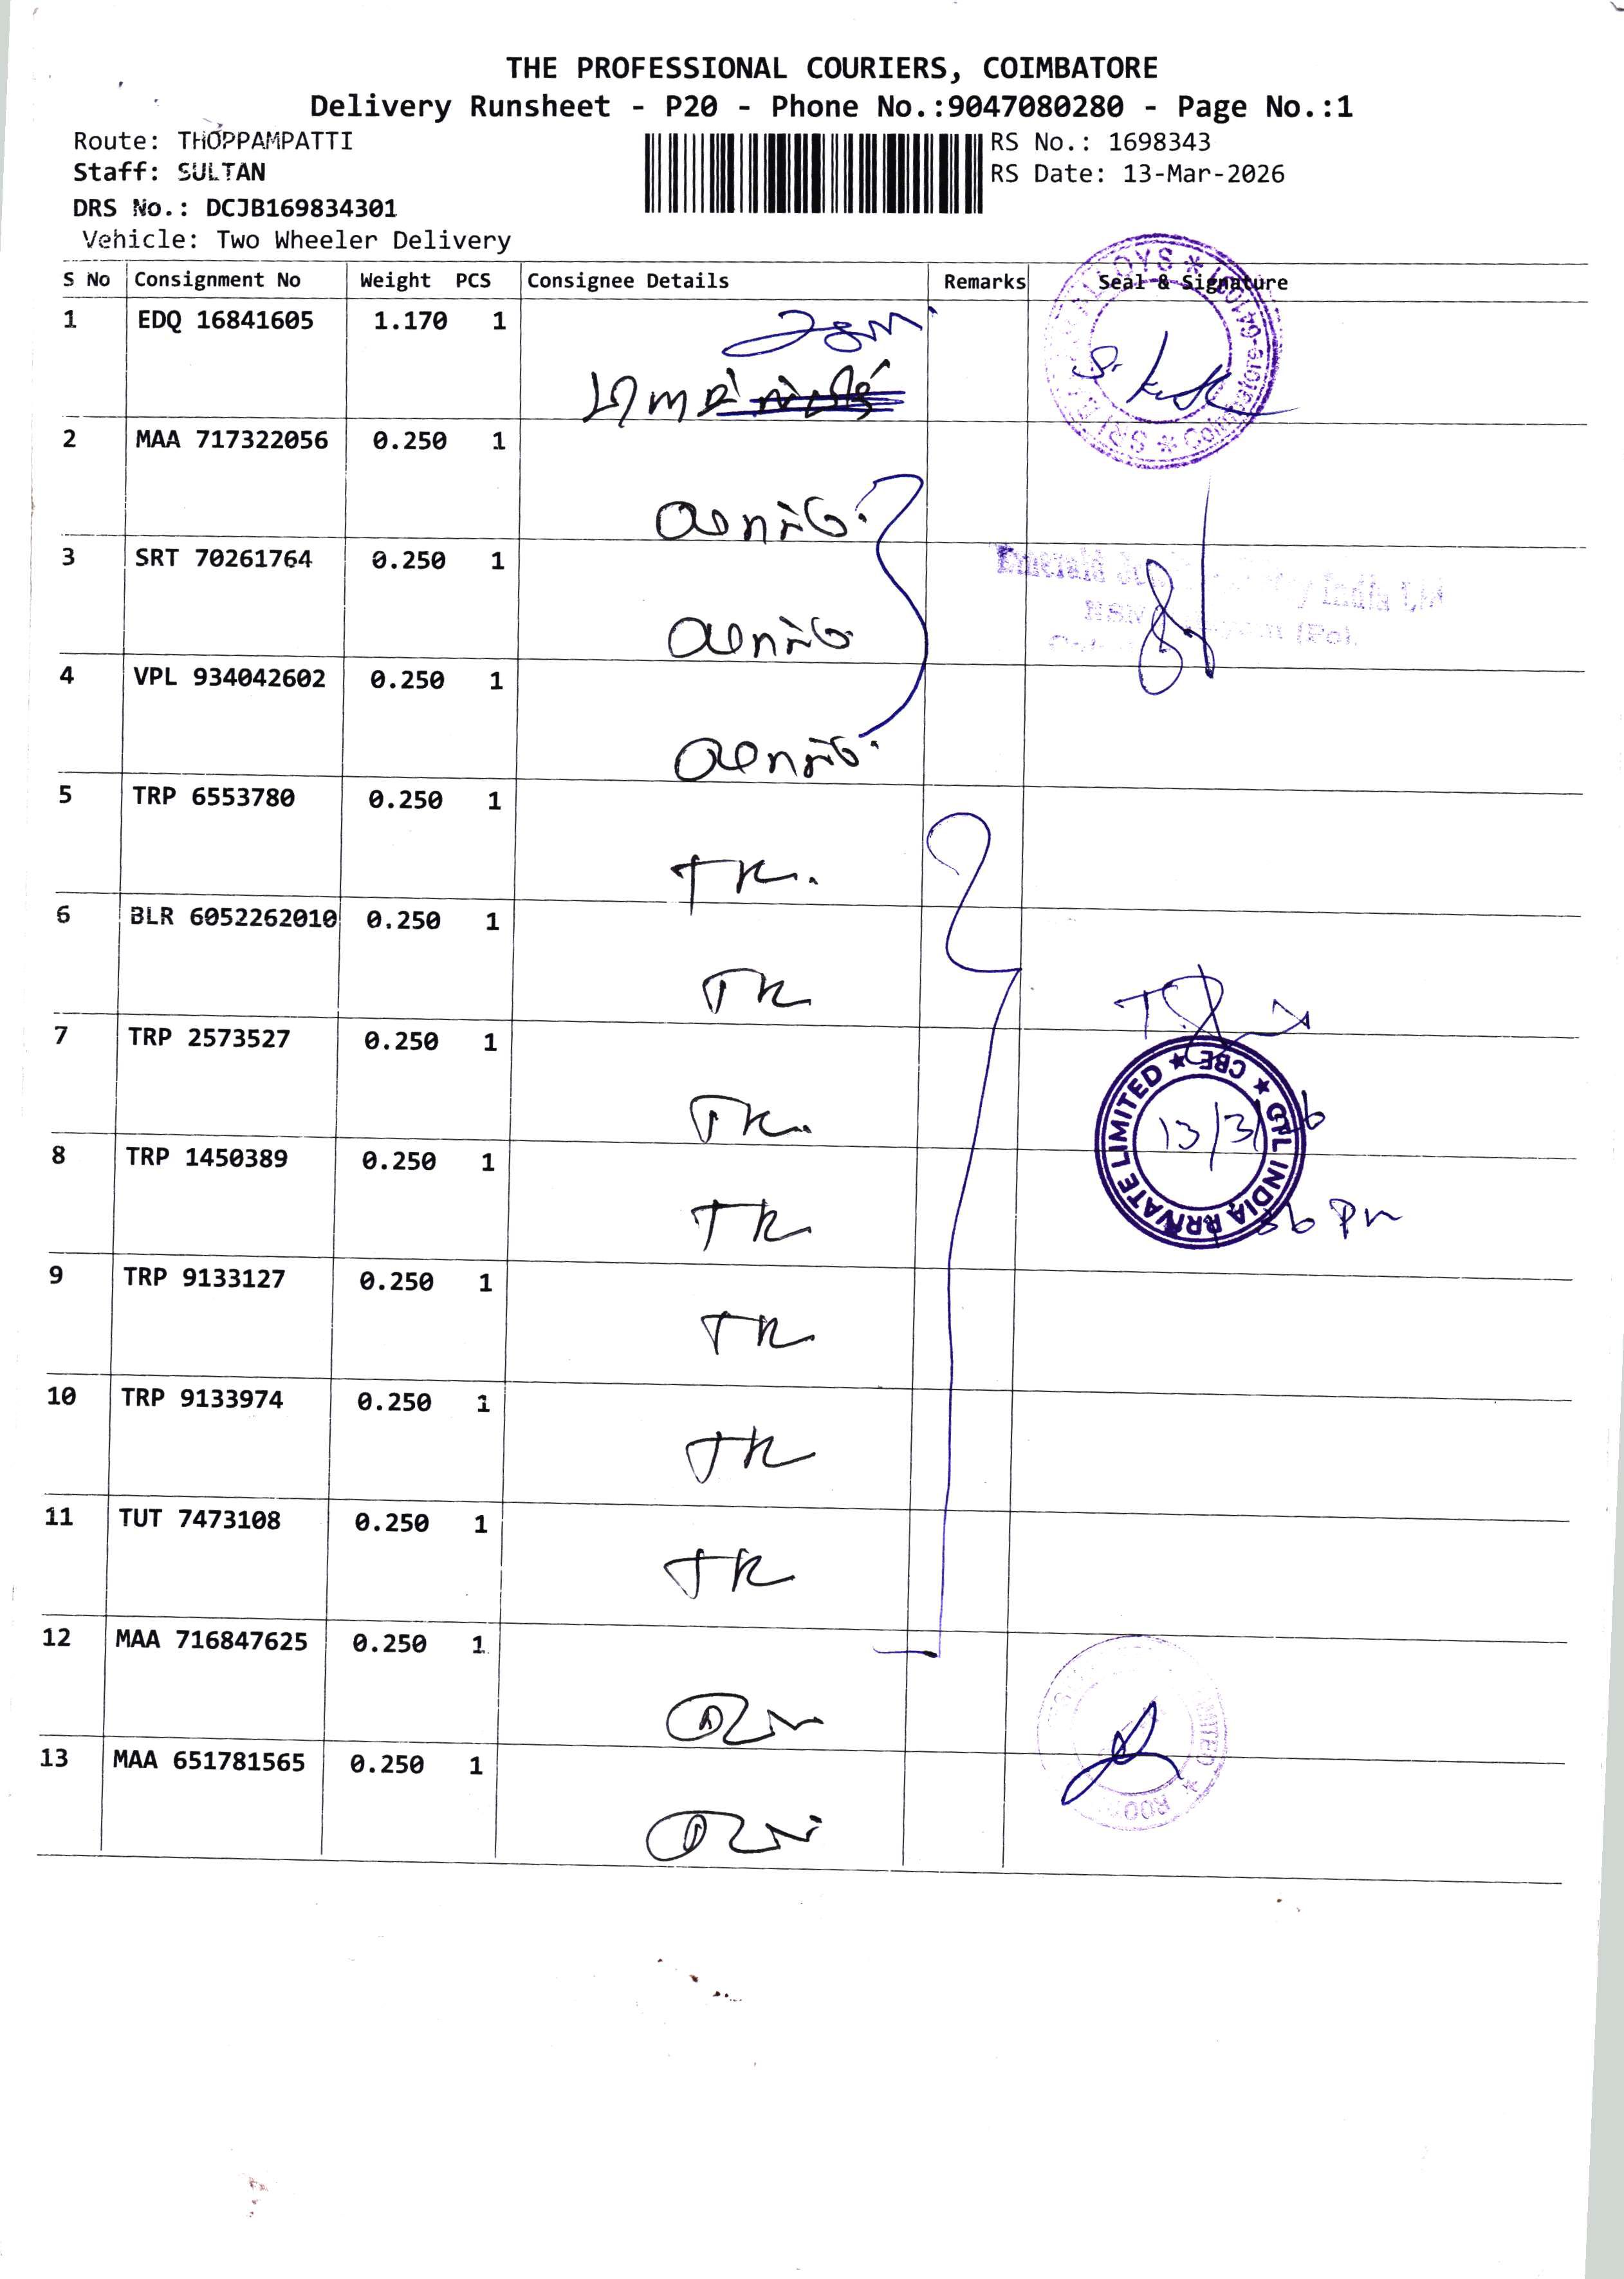 THE PROFESSIONAL COURIERS, COIMBATORE
Delivery Runsheet - P20 - Phone No.:9047080280 - Page No.:1
Route: THOPPAMPATTI
RS No.: 1698343
Staff: SULTAN
RS Date: 13-Mar-2026
DRS No.: DCJB169834301
Vehicle: Two Wheeler Delivery
S No Consignment No Weight PCS Consignee Details Remarks Seal & Signature
1 EDQ 16841605 1.170 1
2 MAA 717322056 0.250 1
3 SRT 70261764 0.250 1
Emerald India
4 VPL 934042602 0.250 1
5 TRP 6553780 0.250 1
TK.
6 BLR 6052262010 0.250 1
TK
7 TRP 2573527 0.250 1
TK.
CBE ★ GTL INDIA PRIVATE LIMITED ★
13/3/26
8 TRP 1450389 0.250 1
TK
9 TRP 9133127 0.250 1
TK
10 TRP 9133974 0.250 1
TK
11 TUT 7473108 0.250 1
TK
12 MAA 716847625 0.250 1
13 MAA 651781565 0.250 1